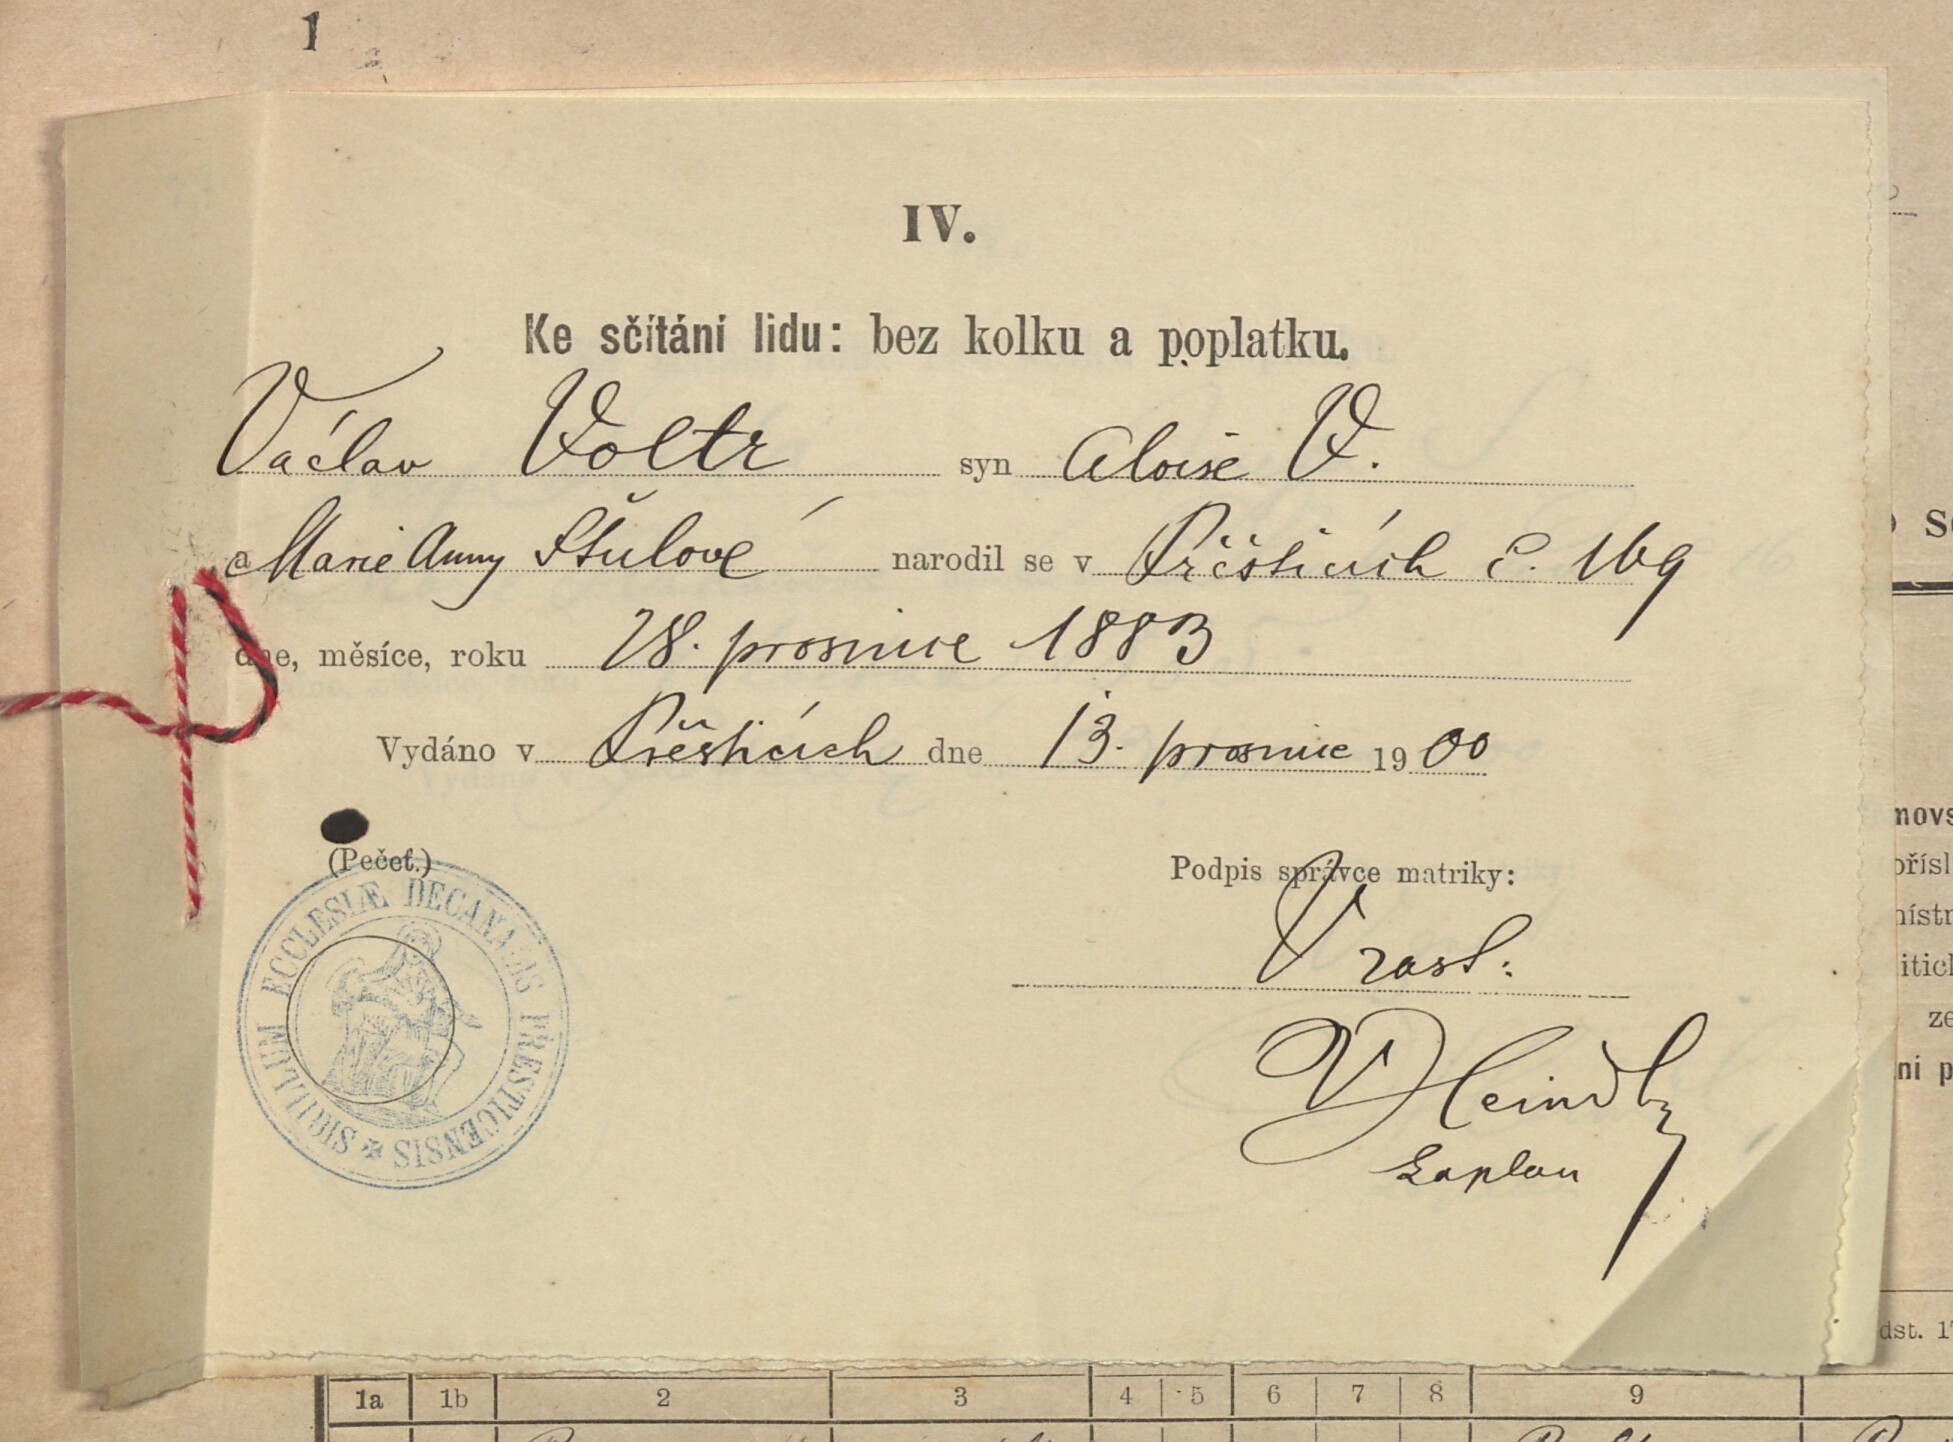 1
IV.
Ke sčítání lidu: bez kolku a poplatku.
Václav Voltr syn Aloise V.
a Marie Anny Štulové narodil se v Přěšticích č. 169
dne, měsíce, roku 28. prosince 1883
Vydáno v Přěšticích dne 13. prosince 1900
(Pečeť.)
Podpis správce matriky:
SIGILLUM ECCLESIÆ DECANALIS PRESTICENSIS
V zast:
V Heindl
kaplan
1a 1b 2 3 4 5 6 7 8 9